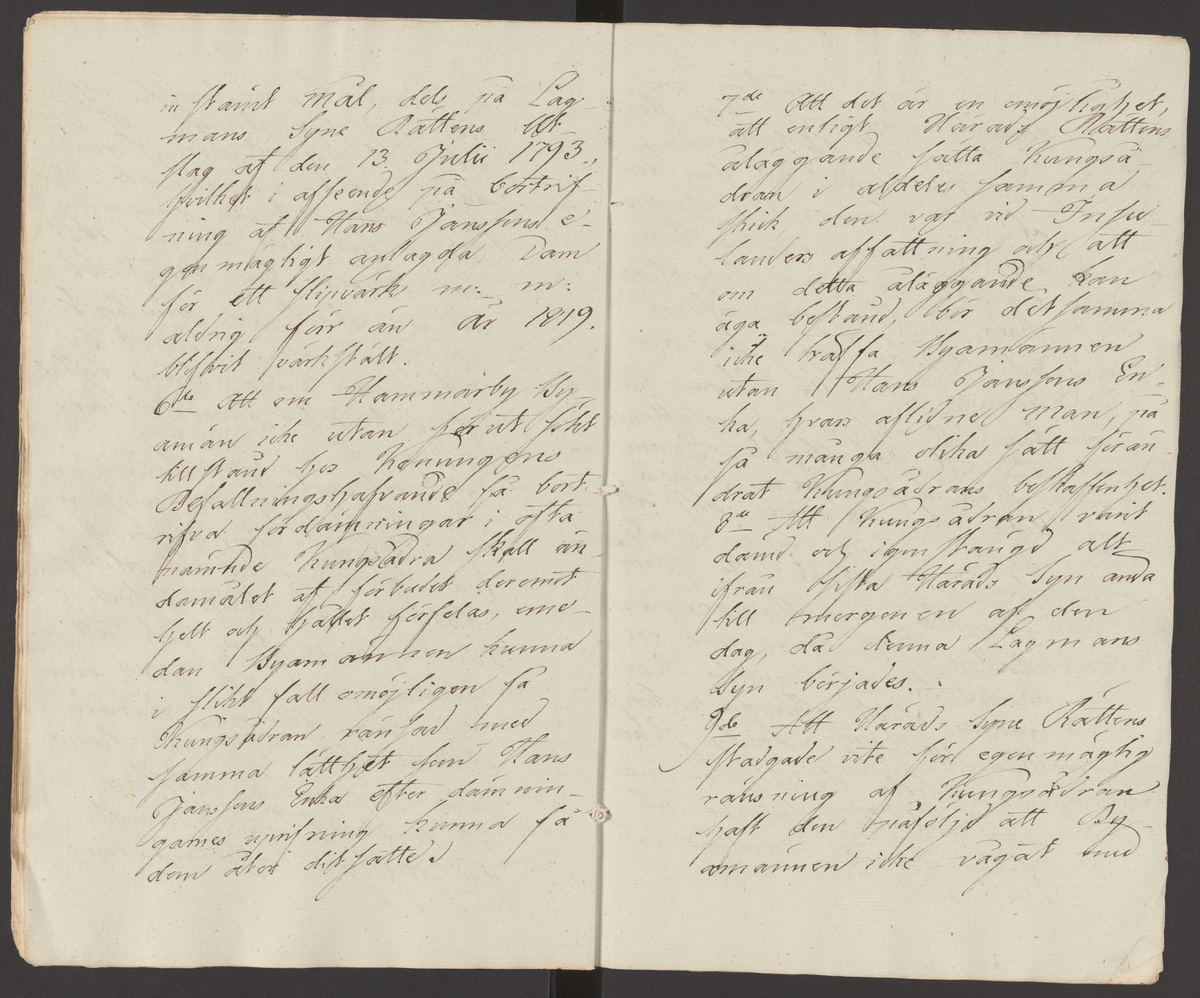 in stämt mål, dels på Lag-
mans Syne Rättens Ut-
slag af den 13 Julii 1793.,
hvilket i afseende på bortrif-
ning af Hans Jänssons e-
genmägtigt anlagda Dam
för ett slipvärk m: m:
aldrig för än år 1819.
blifvit värkstält.
6te Att om Hammarby By-
amän icke utan förut sökt
tillstånd hos Konungens
Befallningshafvande få bort-
rifva fördämningar i ofta
nämnde Kungsådra skall än-
damålet af förbudet deremot
helt och hållet förfelas, eme-
dan Byamännen kunna
i slikt fall omöjligen få
Kungsådran ränsad med
samma lätthet som Hans
Jänssons Enka efter dämnin-
garnes uprifning kunna få
dem åter ditsatte.
7de Att det är en omöjlighet,
att enligt Härads Rättens
åläggande sätta Kungså-
dran i aldeles samma
skick den var vid Insu-
landers affattning och att
om detta åläggande kan
äga bestånd, bör detsamma
icke träffa Byamännen
utan Hans Jänssons En-
ka, hvars aflidne man, på
så många olika sätt förän-
drat Kungsådrans beskaffenhet.
8de Att Kungsådran varit
dämd och igenstängd alt
ifrån sista Härads Syn ända
till morgonen af den
dag, då denna Lagmans
Syn börjades.
9de Att Härads Syne Rättens
stadgade vite för egenmägtig
ränsning af Kungsådran
haft den påföljd att By-
amännen icke vågat med